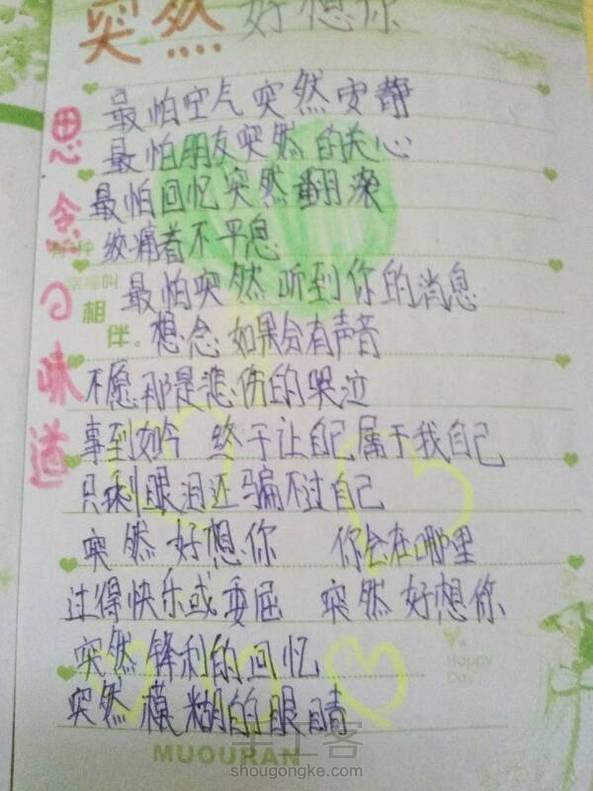 突然 好想你
最怕空气突然安静
最怕朋友突然的关心
最怕回忆突然翻滚
绞痛着不平息
最怕突然听到你的消息
想念如果会有声音
不愿那是悲伤的哭泣
事到如今 终于让自己属于我自己
只剩眼泪还骗不过自己
突然好想你 你会在哪里
过得快乐或委屈 突然好想你
突然锋利的回忆
突然模糊的眼睛
思念の味道
相
伴。
Happy
Day
MUOURAN
手工客
shougongke.com